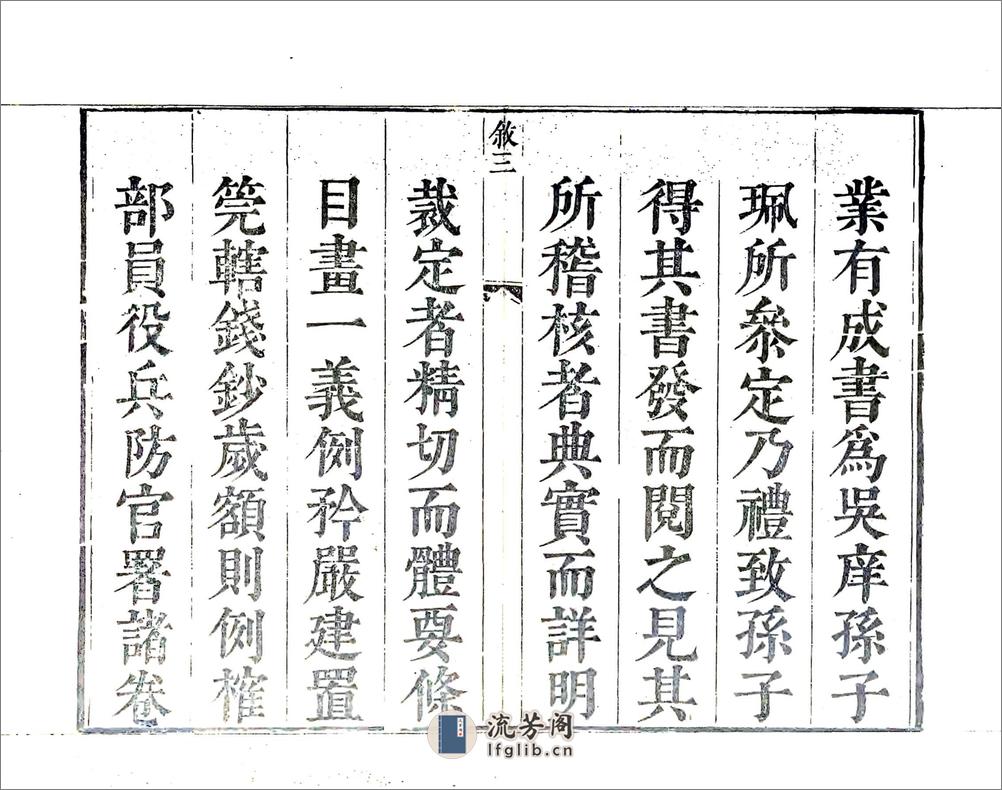 業有成書爲吳庠孫子
珮所叅定乃禮致孫子
得其書發而閱之見其
所稽核者典實而詳明
敘三
裁定者精切而體要條
目畫一義例矜嚴建置
筦轄錢鈔歲額則例榷
部員役兵防官署諸卷
流芳阁
lfglib.cn